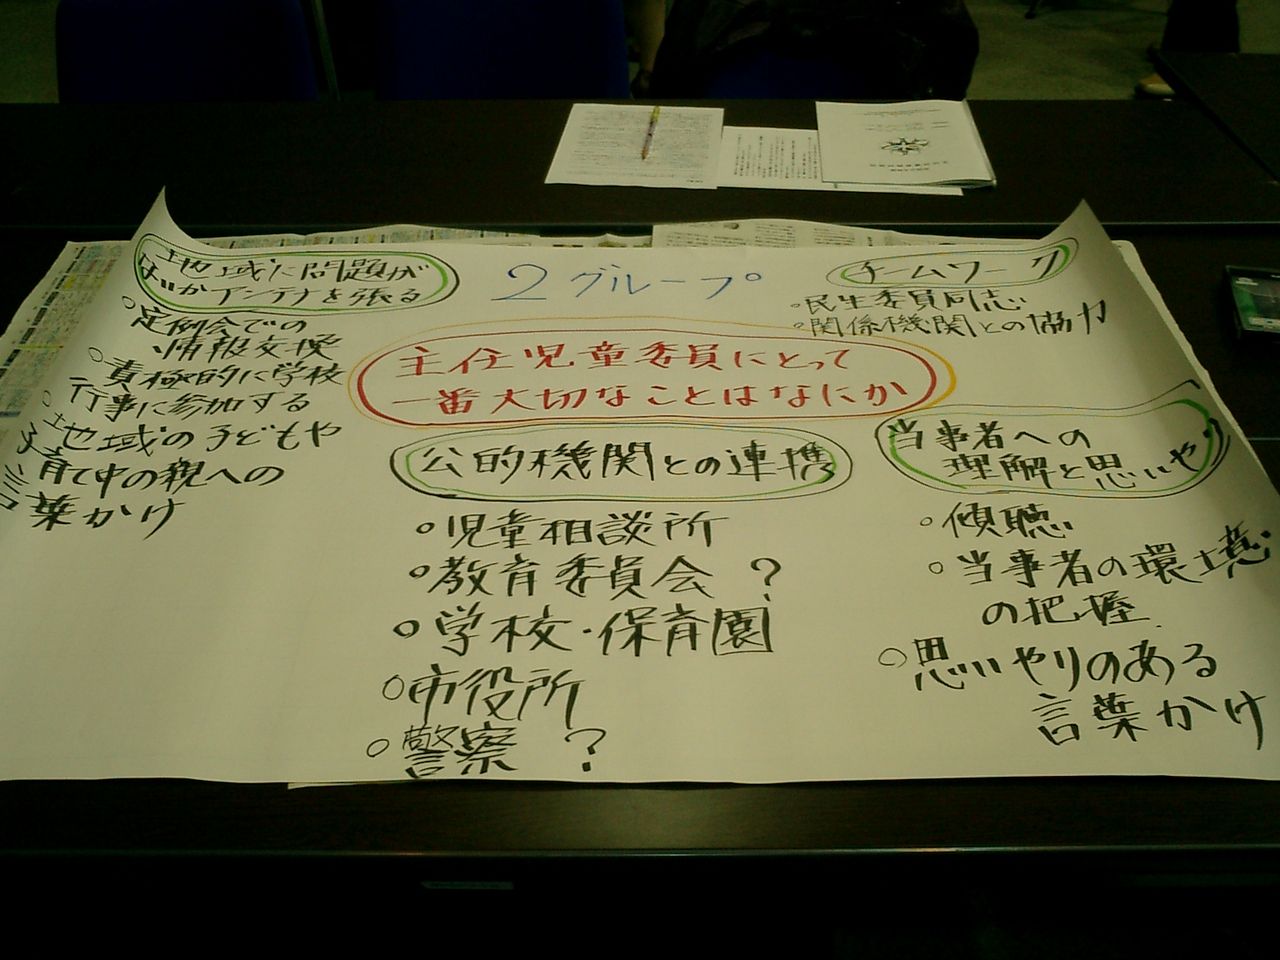 2グループ
主任児童委員にとって
一番大切なことはなにか
地域に問題が
ないかアンテナを張る
○定例会での
情報交換
○責極的に学校
行事に参加する
○地域の子どもや
子育て中の親への
言葉かけ
公的機関との連携
○児童相談所
○教育委員会?
○学校・保育園
○市役所
○警察?
チームワーク
○民生委員同志
○関係機関との協力
当事者への
理解と思いやり
○傾聴
○当事者の環境
の把握
○思いやりのある
言葉かけ